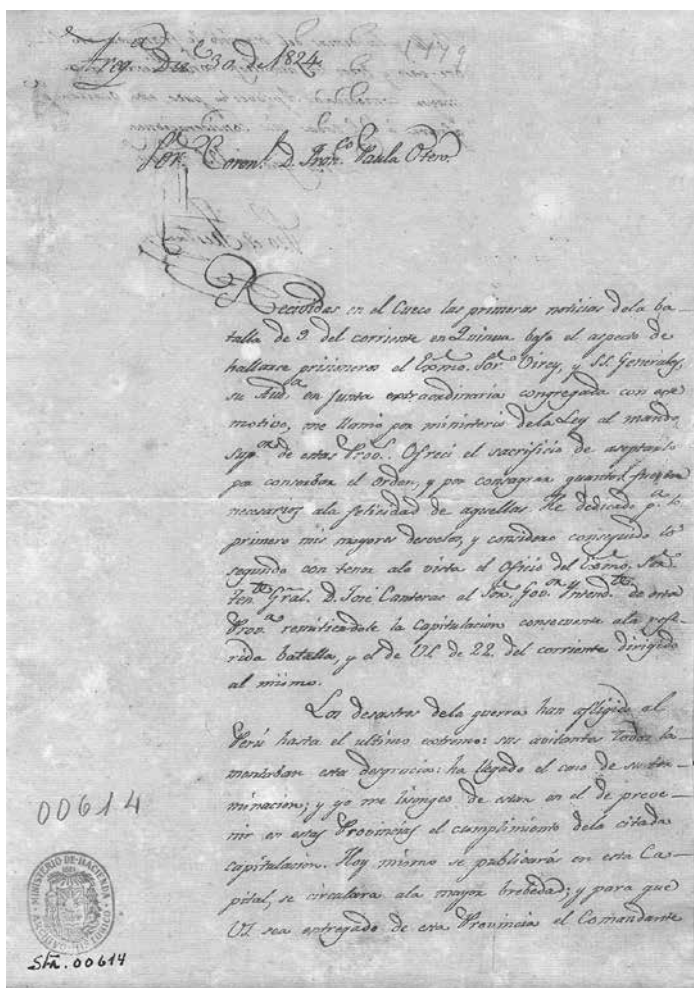 Areq.a Dic.e 30 de 1824.
Sor. Coronl. D. Fran.co Paula Otero.
Recividas en el Cuzco las primeras noticias dela ba-
talla de 9 del corriente en Quinua bajo el aspecto de
hallarse prisioneros el Exmo. Sor. Virey, y SS. Generales,
su Aud.a en junta extraordinaria congregada con este
motivo, me llamó por ministerio dela Ley al mando
sup.or de estas Prov.s. Ofreci el sacrificio de aseptarlo
por conserbar el orden, y por consagrar quantos fuesen
necesarios ala felicidad de aquellas. He dedicado p.a lo
primero mis mayores desvelos, y considero conseguido lo
segundo con tener ala vista el oficio del Exmo. Sor.
Ten.te Gral. D. José Canterac al Sor. Gov.or Intend.te de esta
Prov.a remitiendole la Capitulacion consecuente ala refe-
rida batalla, y el de US. de 22. del corriente dirigido
al mismo.
Los desastres dela guerra han afligido al
Perú hasta el ultimo extremo: sus avitantes todos la-
mentaban esta desgracia: ha llegado el caso de su ter-
minacion; y yo me lisongeo de estar en el de preve-
nir en estas Provincias el cumplimiento dela citada
capitulacion. Hoy mismo se publicará en esta Ca-
pital, se circulara ala mayor brebedad; y para que
US. sea entregado de esta Provincia el Comandante
00614
MINISTERIO DE HACIENDA
ARCHIVO HISTORICO
Sta. 00614